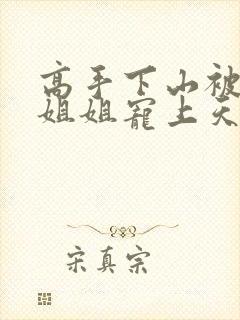 高手下山被
姐姐宠上天
宋真宗